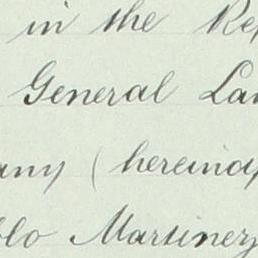 in the Rep
General Lan
any (hereinaf
blo Martinez